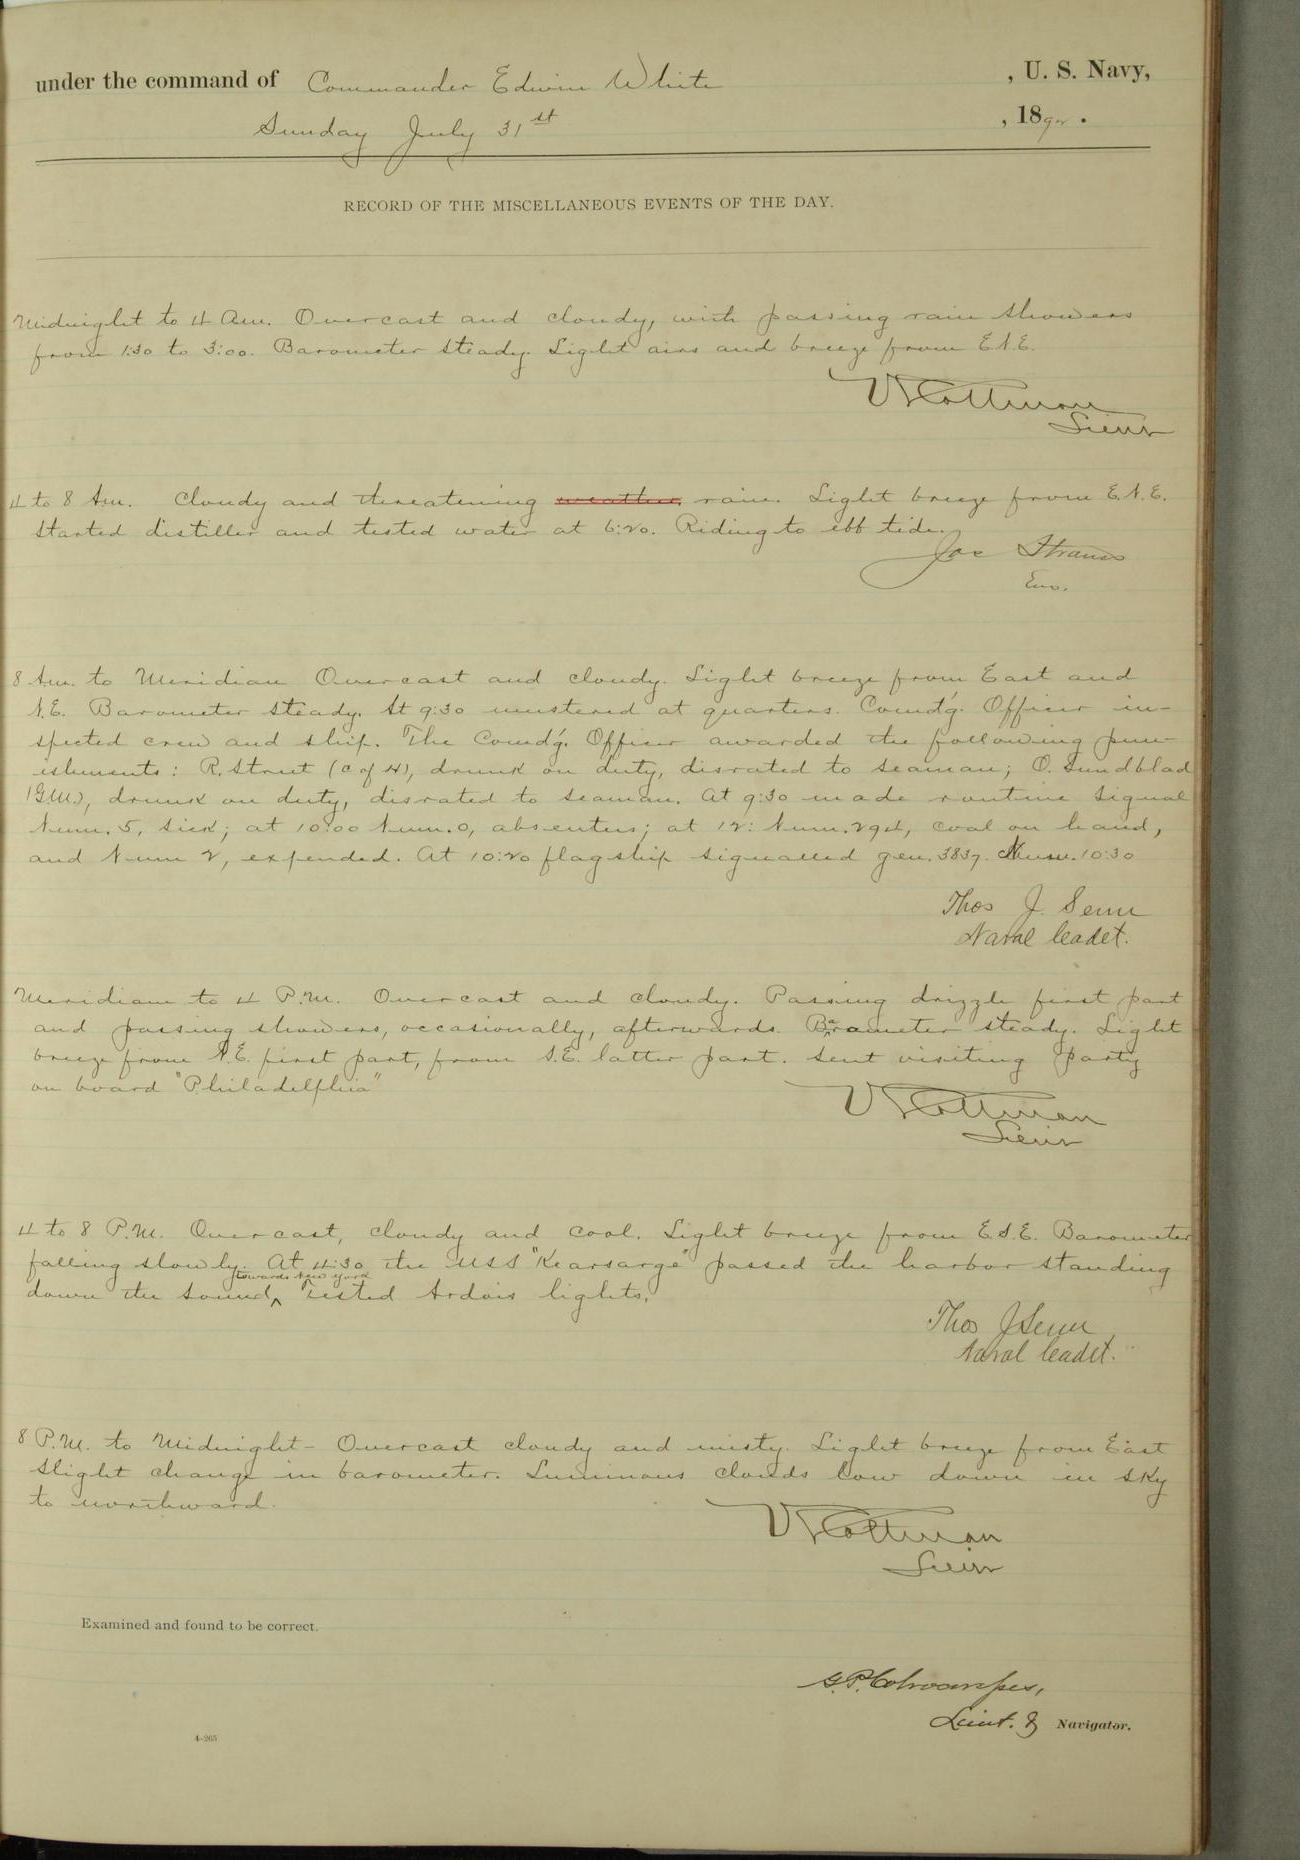 under the command of Commander Edwin White , U. S. Navy,
Sunday July 31st , 1892.
RECORD OF THE MISCELLANEOUS EVENTS OF THE DAY.
Midnight to 4 Am. Overcast and cloudy, with passing rain showers
from 1:30 to 3:00. Barometer steady. Light airs and breeze from E.N.E.
V S Cottman
Lieut
4 to 8 Am. Cloudy and threatening weather rain. Light breeze from E.N.E.
Started distiller and tested water at 6:20. Riding to ebb tide.
Jos Strauss
Ens.
8 Am. to Meridian Overcast and cloudy. Light breeze from East and
N.E. Barometer steady. At 9:30 mustered at quarters. Comd'g. Officer in-
spected crew and ship. The Comd'g. Officer awarded the following pun-
ishments: R. Street (C of H), drunk on duty, disrated to seaman; O. Sundblad
(G.M.), drunk on duty, disrated to seaman. At 9:30 made routine signal
Num. 5, sick; at 10:00 Num. 0, absentees; at 12: Num. 294, coal on hand,
and Num 2, expended. At 10:20 flagship signalled gen. 3837. Num. 10:30
Thos J. Senn
Naval Cadet.
Meridian to 4 P.M. Overcast and cloudy. Passing drizzle first part
and passing showers, occasionally, afterwards. Barometer steady. Light
breeze from N.E. first part, from S.E. latter part. Sent visiting party
on board "Philadelphia"
V S Cottman
Lieut
4 to 8 P.M. Overcast, cloudy and cool. Light breeze from E.S.E. Barometer
falling slowly. At 4:30 the USS "Kearsarge" passed the harbor standing
towards New York
down the sound^ Tested Ardois lights.
Thos J Senn
Naval Cadet.
8 P.M. to Midnight – Overcast cloudy and misty. Light breeze from East
Slight change in barometer. Luminous clouds low down in sky
to northward.
V S Cottman
Lieut
Examined and found to be correct.
G.P. Colvocoresses,
Lieut. & Navigator.
4–265